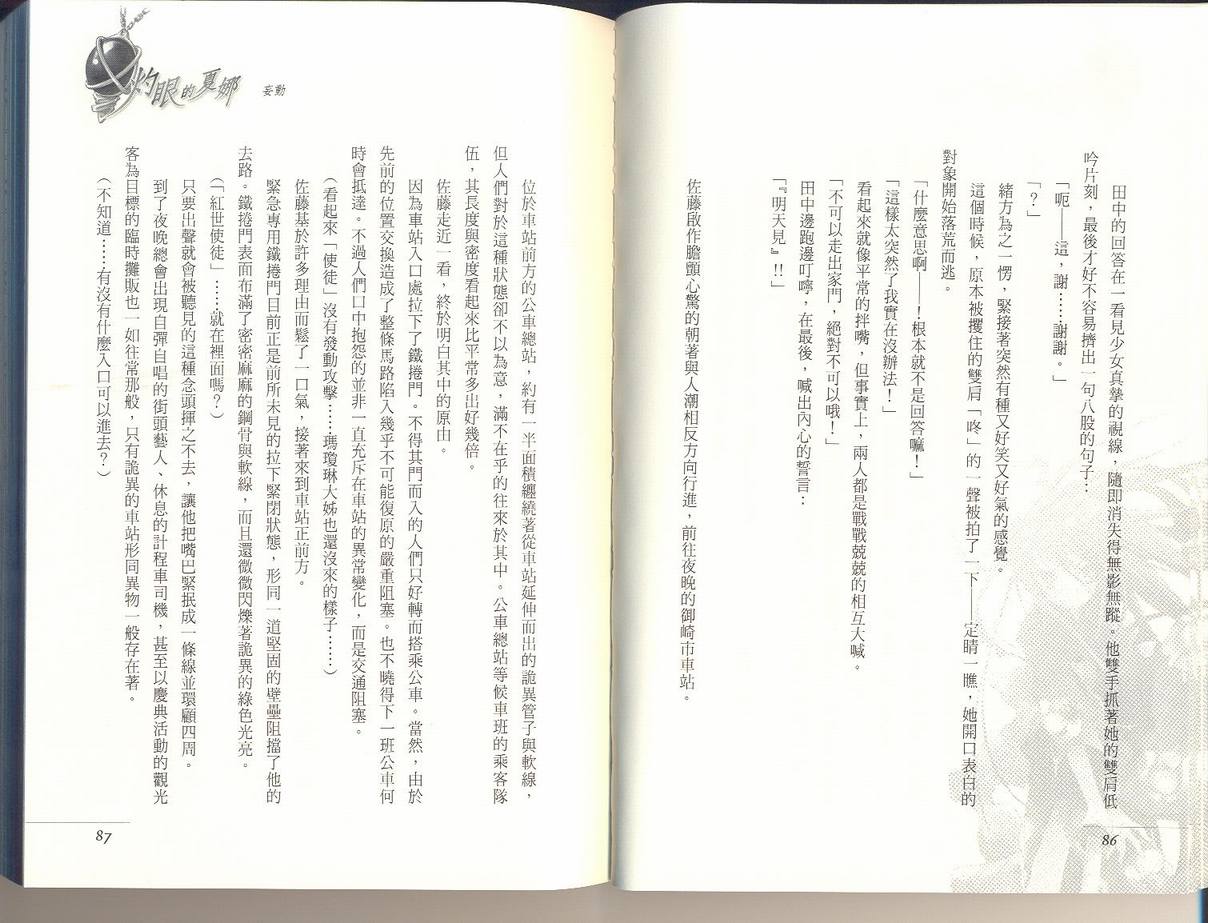 田中的回答在一看見少女真摯的視線，隨即消失得無影無蹤。他雙手抓著她的雙肩低
吟片刻，最後才好不容易擠出一句八股的句子：
「呃——這，謝……謝謝。」
「？」
緒方為之一愣，緊接著突然有種又好笑又好氣的感覺。
這個時候，原本被攫住的雙肩「咚」的一聲被拍了一下——定睛一瞧，她開口表白的
對象開始落荒而逃。
「什麼意思啊——！根本就不是回答嘛！」
「這樣太突然了我實在沒辦法！」
看起來就像平常的拌嘴，但事實上，兩人都是戰戰兢兢的相互大喊。
「不可以走出家門，絕對不可以哦！」
田中邊跑邊叮嚀，在最後，喊出內心的誓言：
「『明天見』!!」
佐藤啟作膽顫心驚的朝著與人潮相反方向行進，前往夜晚的御崎市車站。
86
灼眼的夏娜
妄動
位於車站前方的公車總站，約有一半面積纏繞著從車站延伸而出的詭異管子與軟線，
但人們對於這種狀態卻不以為意，滿不在乎的往來於其中。公車總站等候車班的乘客隊
伍，其長度與密度看起來比平常多出好幾倍。
佐藤走近一看，終於明白其中的原由。
因為車站入口處拉下了鐵捲門。不得其門而入的人們只好轉而搭乘公車。當然，由於
先前的位置交換造成了整條馬路陷入幾乎不可能復原的嚴重阻塞。也不曉得下一班公車何
時會抵達。不過人們口中抱怨的並非一直充斥在車站的異常變化，而是交通阻塞。
（看起來「使徒」沒有發動攻擊……瑪瓊琳大姊也還沒來的樣子……）
佐藤基於許多理由而鬆了一口氣，接著來到車站正前方。
緊急專用鐵捲門目前正是前所未見的拉下緊閉狀態，形同一道堅固的壁壘阻擋了他的
去路。鐵捲門表面布滿了密密麻麻的鋼骨與軟線，而且還微微閃爍著詭異的綠色光亮。
（「紅世使徒」……就在裡面嗎？）
只要出聲就會被聽見的這種念頭揮之不去，讓他把嘴巴緊抿成一條線並環顧四周。
到了夜晚總會出現自彈自唱的街頭藝人、休息的計程車司機，甚至以慶典活動的觀光
客為目標的臨時攤販也一如往常那般，只有詭異的車站形同異物一般存在著。
（不知道……有沒有什麼入口可以進去？）
87